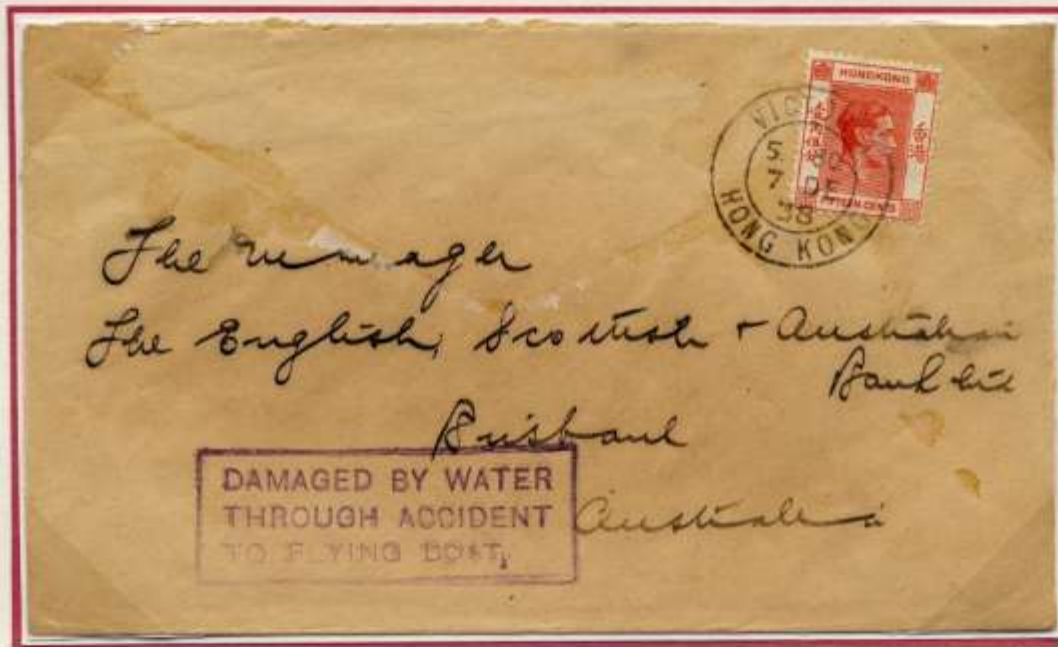 HONGKONG
香港
FIFTEEN CENTS
VICTO
7 DE
38
HONG KONG
The Manager
The English, Scottish + Australian
Bank Ltd
Brisbane
DAMAGED BY WATER
THROUGH ACCIDENT
TO FLYING BOAT,
Australia